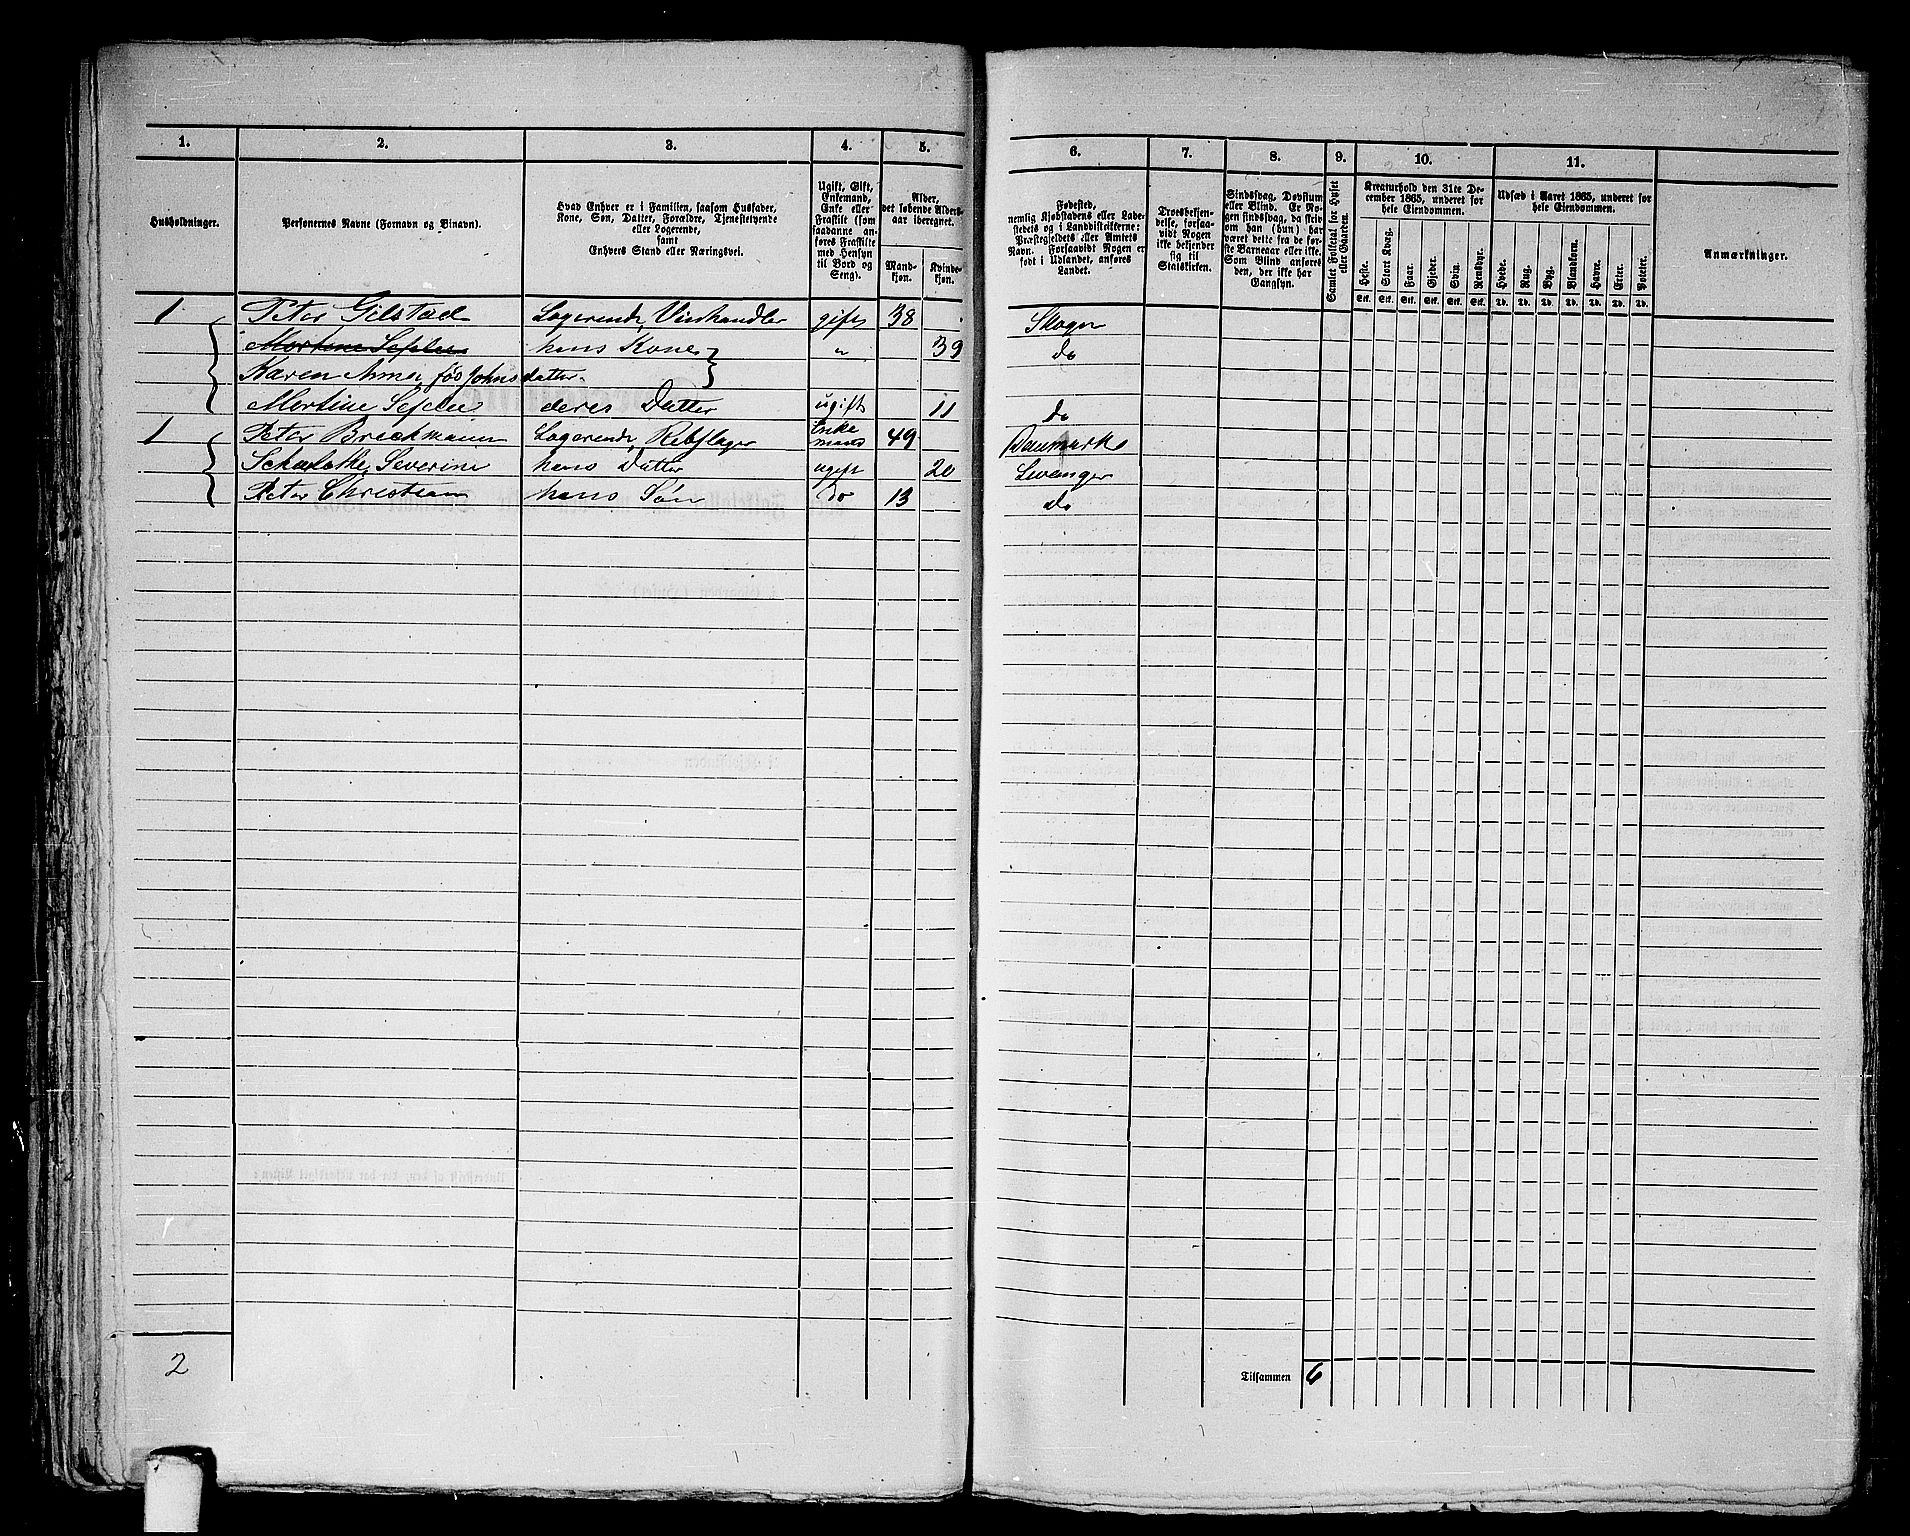 1. 2. 3. 4. 5. 6. 7. 8. 9. 10. 11.
Husholdninger.
Personernes Navne (Fornavn og Binavn).
Hvad Enhver er i Familien, saasom Husfader,
Kone, Søn, Datter, Forældre, Tjenestetyende
eller Logerende,
samt
Enhvers Stand eller Næringsvei.
Ugift, Gift,
Enkemand,
Enke eller
Fraskilt (som
saadanne an-
føres Fraskilte
med Hensyn
til Bord og
Seng).
Alder,
det løbende Alders-
aar iberegnet.
Mand-
kjøn.
Kvinde-
kjøn.
Fødested,
nemlig Kjøbstadens eller Lade-
stedets og i Landdistrikterne:
Præstegjeldets eller Amtets
Navn. Forsaavidt Nogen er
født i Udlandet, anføres
Landet.
Troesbekjen-
delse, forsaa-
vidt Nogen
ikke bekjender
sig til
Statskirken.
Sindssvag, Døvstum
eller Blind. Er No-
gen sindssvag, da skriv
om han (hun) har
været dette fra de før-
ste Barneaar eller ikke.
Som Blind anføres
den, der ikke har
Gangsyn.
Samlet Folketal for Huset
eller Gaarden.
Kreaturhold den 31te De-
cember 1865, underet for
hele Eiendommen.
Heste. Stort Kvæg. Faar. Gjeder. Svin. Rensdyr.
Stk. Stk. Stk. Stk. Stk. Stk.
Udsæd i Aaret 1865, underet for
hele Eiendommen.
Hvede. Rug. Byg. Blandkorn. Havre. Erter. Poteter.
Td. Td. Td. Td. Td. Td. Td.
Anmærkninger.
1 Peter Gilstad Logerende, Vinhandler gift 38 Skogn
Martine Sefelie hans Kone „ 39 do
Karen Anna, fød Johnsdatter
Martine Sefelie deres Datter ugift 11 do
1 Peter Breckmann Logerende, Rebslager Enkemand 49 Danmark
Scharlotte Severine hans Datter ugift 20 Levanger
Peter Christian hans Søn do 13 do
2
Tilsammen 6